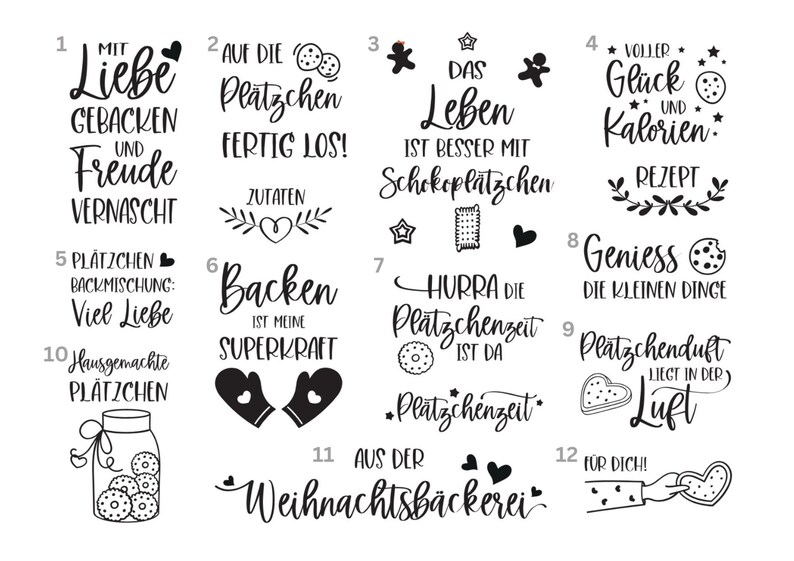 1
MIT
Liebe
GEBACKEN
UND
Freude
VERNASCHT
2
AUF DIE
Plätzchen
FERTIG LOS!
ZUTATEN
3
DAS
Leben
IST BESSER MIT
Schokoplätzchen
4
VOLLER
Glück
UND
Kalorien
REZEPT
5
PLÄTZCHEN
BACKMISCHUNG:
Viel Liebe
6
Backen
IST MEINE
SUPERKRAFT
7
HURRA DIE
Plätzchenzeit
IST DA
Plätzchenzeit
8
Geniess
DIE KLEINEN DINGE
9
Plätzchenduft
LIEGT IN DER
Luft
10
Hausgemachte
PLÄTZCHEN
11
AUS DER
Weihnachtsbäckerei
12
FÜR DICH!